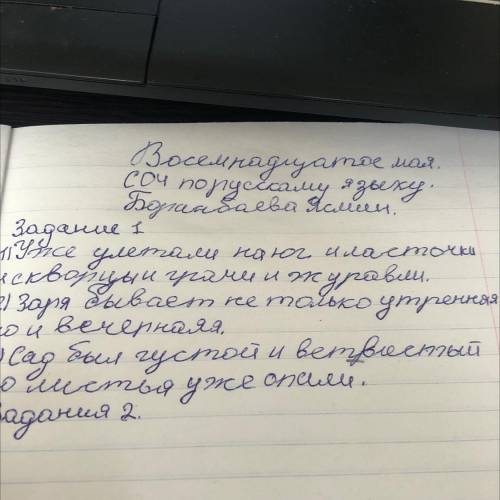 Восемнадцатое мая.
СОЧ по русскому языку.
Ясмин.
Задание 1
1) Уже улетали на юг и ласточки
и скворцы и грачи и журавли.
2) Заря бывает не только утренная
но и вечерная.
) Сад был густой и ветвистый
о листья уже опали.
Задания 2.